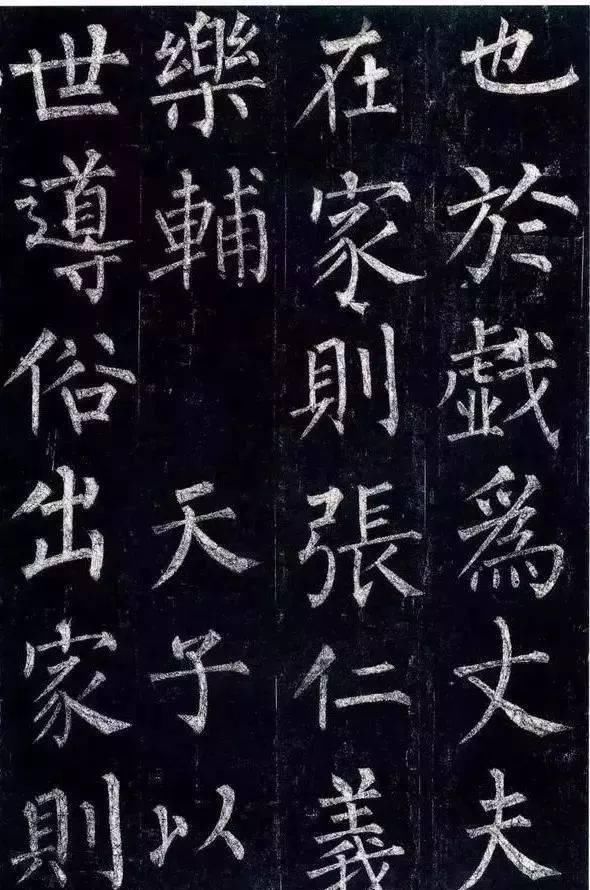 也於戯爲丈夫
在家則張仁義
樂輔天子以
世導俗出家則